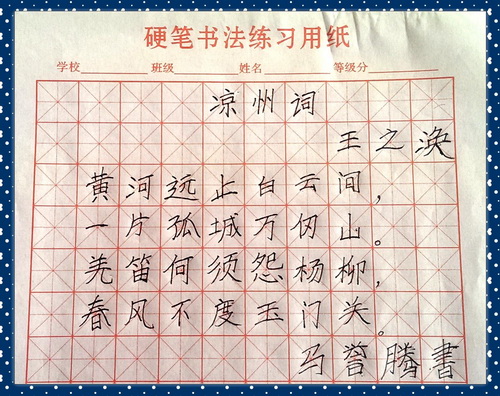 硬笔书法练习用纸
学校 班级 姓名 等级分
凉州词
王之涣
黄河远上白云间，
一片孤城万仞山。
羌笛何须怨杨柳，
春风不度玉门关。
马誉腾書